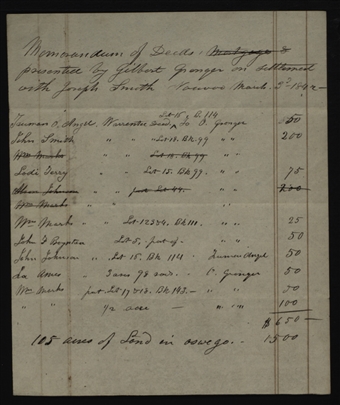 Memorandum of Deeds & Mortgages
presented by Gilbert Granger on settlement
with Joseph Smith Nauvoo March 3d 1842—
Lot 15, B. 114
Truman O. Angel Warrentee Deed to O. Granger 150
John Smith " " Lot 13. Bk 99 " " 200
Wm Marks " " Lot 13. Bk 99
Lodi Terry " Lot 15. Bk 99. " " 75
Johnson " part Lot 200
Wm Marks " "
Wm Marks " " Lot 1 2 3 & 4. Bk 111. " " 25
John F Boynton Lot 5. part of " " 50
John Johnson " Lot 15. Bk 114 Truman Angel 50
Ames " 3 acre 78 rod. O. Granger 50
Wm Marks part Lot 17 & 18. Bk 143. " " 50
" " 1/2 acre — " " 100
$650—
105 acres of Land in oswego. 1500